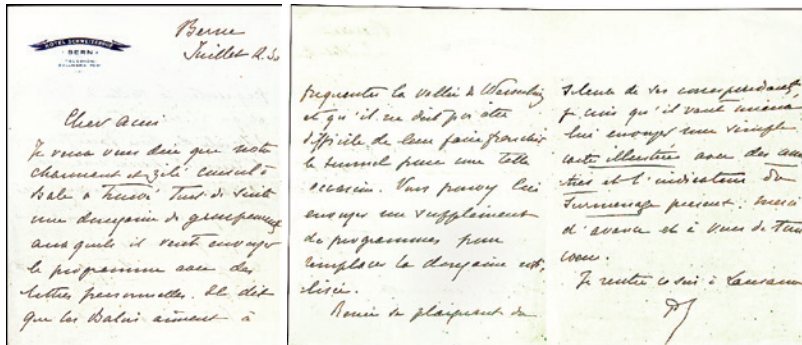 HOTEL SCHWEIZERHOF
BERN
Berne
Juillet 12. 30
Cher ami
Je veux vous dire que notre
charmant et zélé consul à
Bale a trouvé tout de suite
une douzaine de groupements
auxquels il veut envoyer
le programme avec des
lettres personnelles. Il dit
que les Balois aiment à
frequenter la vallée de
et qu'il ne doit pas être
difficile de leur faire franchir
le tunnel pour une telle
occasion. Vous pouvez lui
envoyer un supplément
de programmes pour
remplacer la douzaine uti-
lisée.
Renée se plaignant du
silence de ses correspondants,
je crois qu'il vaut mieux
lui envoyer une simple
carte illustrée avec des
et l'indicateur du
surmenage présent. Merci
d'avance et à vous de tout
coeur.
Je rentre ce soir à Lausanne